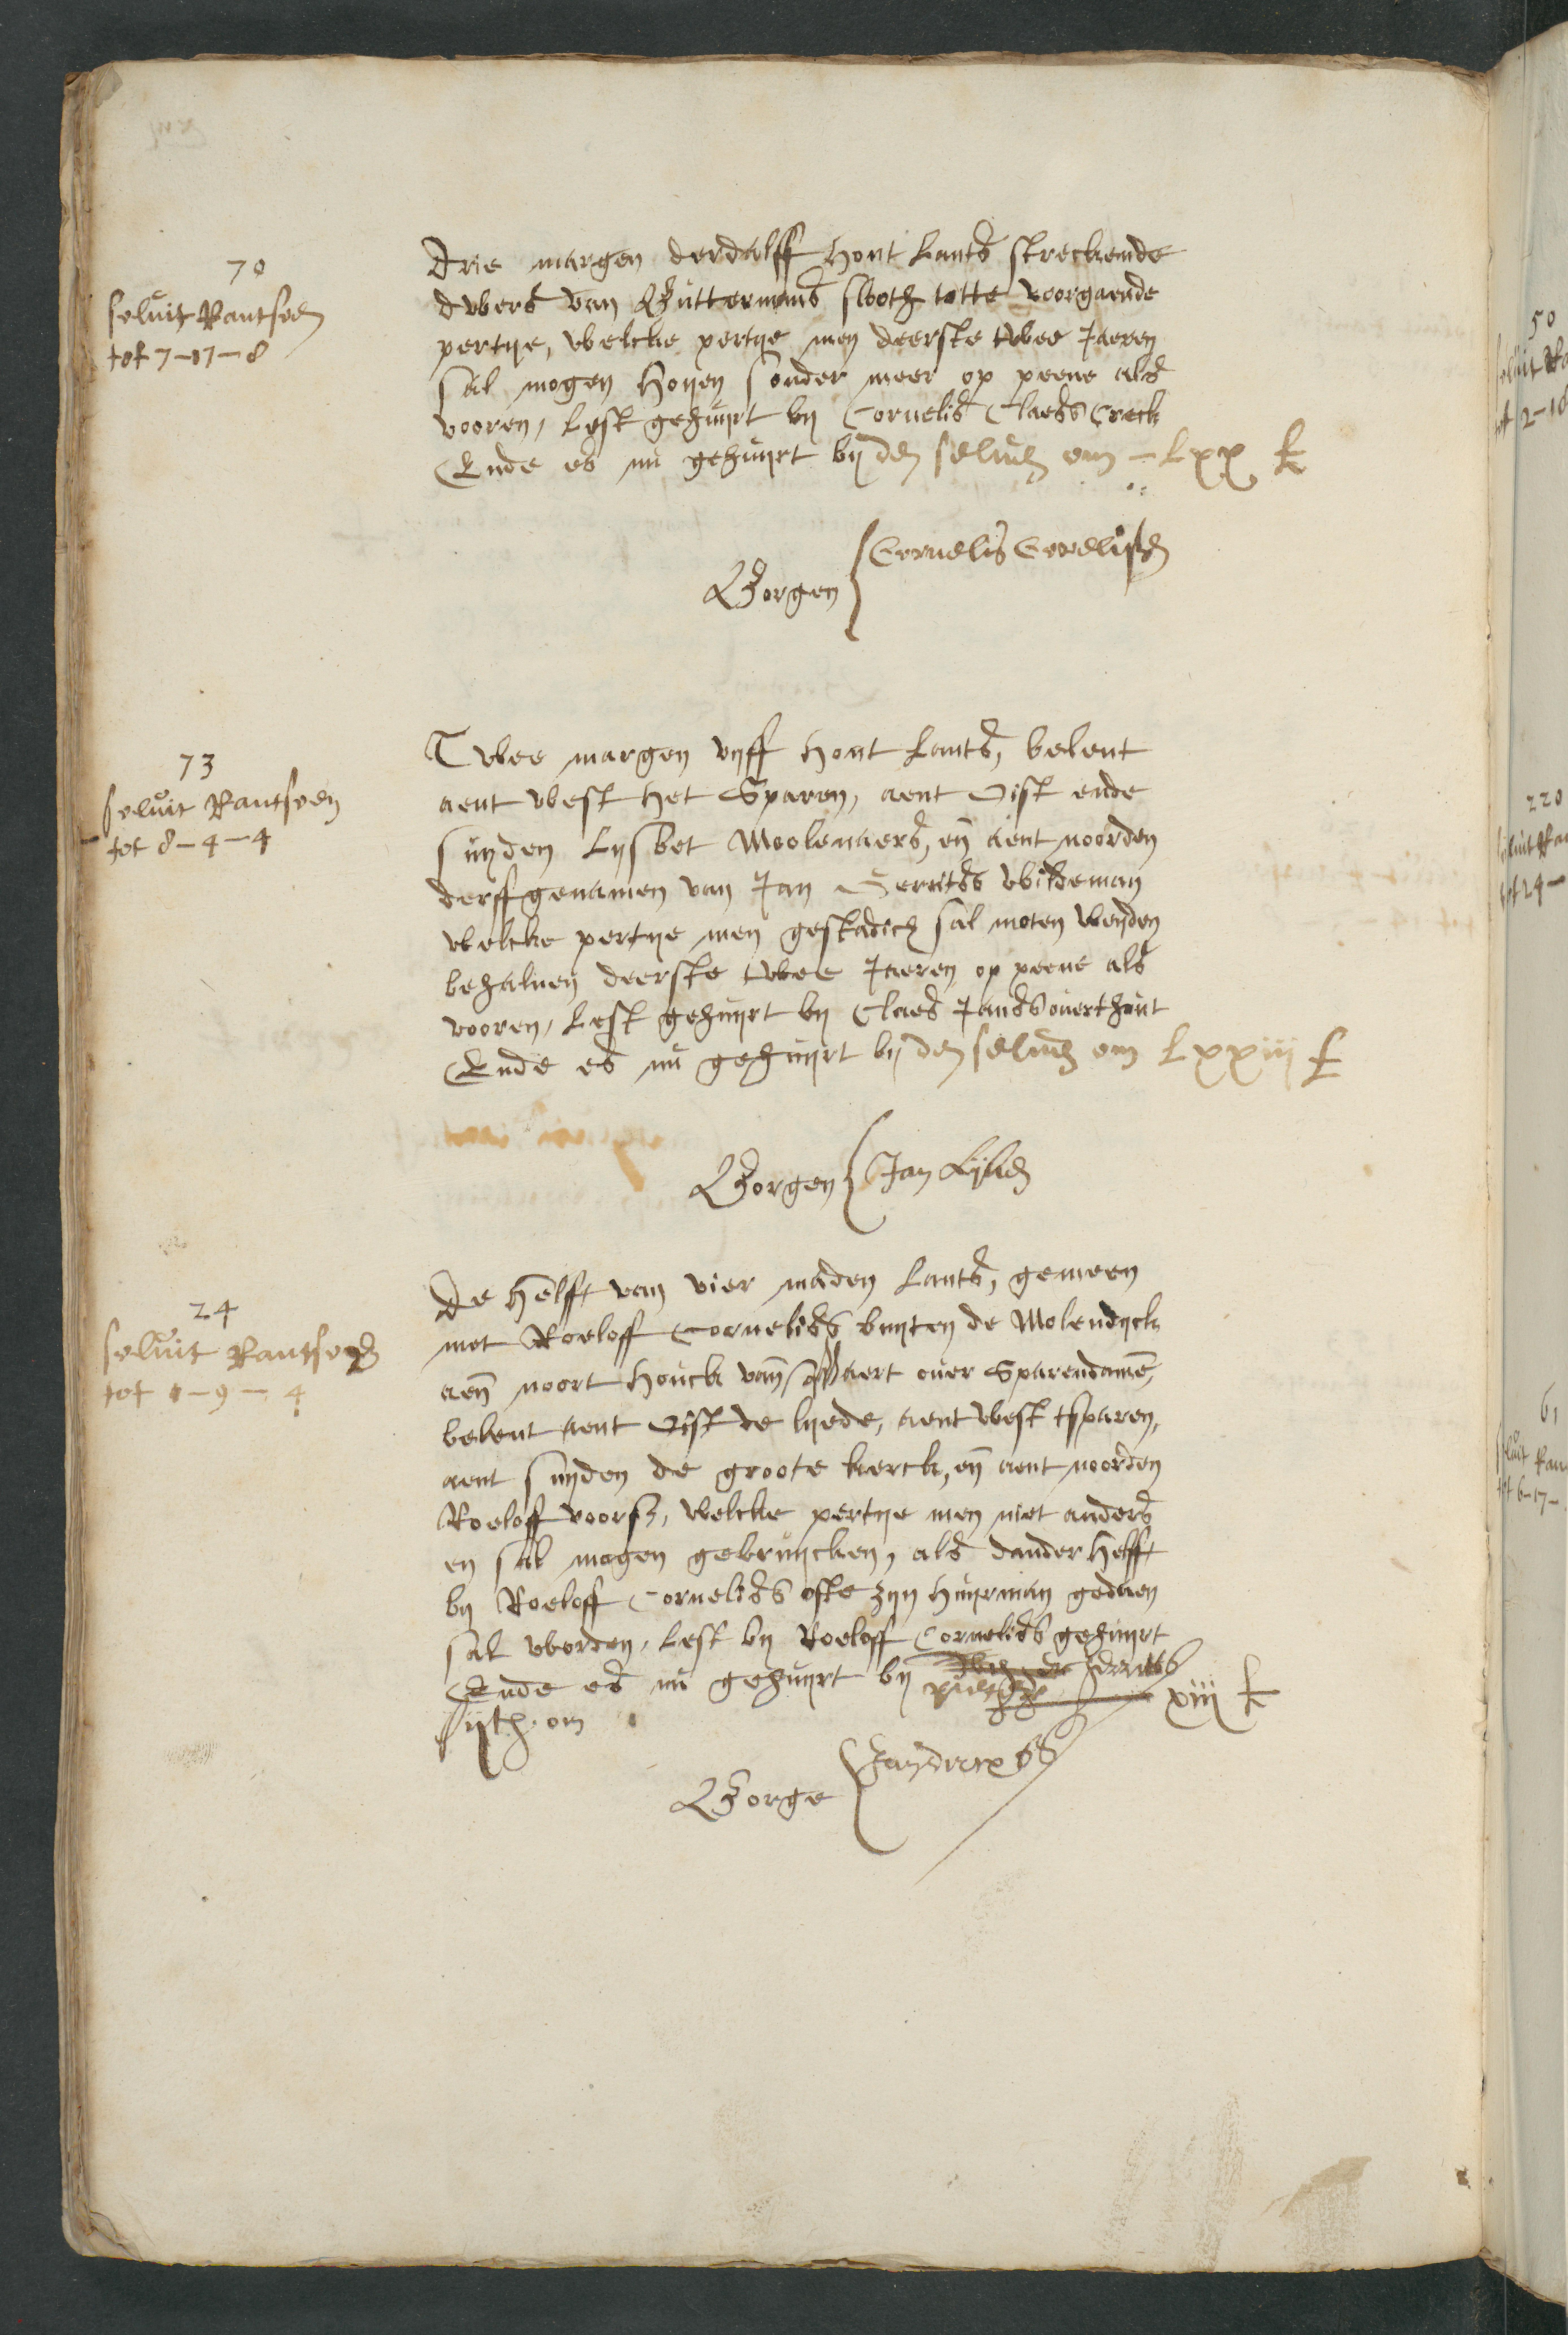 70
soluit Rantsoen
tot 7-17-8
Drie margen derdalff hont Lants streckende
dwers van Buttermans sloth totte voorgaende
pertye, welcke pertye men deerste twee Jaeren
sal mogen hoyen sonder meer op peene als
vooren, Lest gehuyrt by Cornelis Claess Creck
Ende es nu gehuyrt by den seluen om - Lxx £
Borgen Cornelis
73
soluit Rantsoen
tot 8-4-4
Twee margen vyff hont Lants, belent
aent west het Sparen, aent Oist ende
suyden Lysbet Moolenaers, en aent noorden
derffgenamen van Jan Gerritss wildeman
welcke pertye men gestadich sal moten weyden
behaluen deerste twee Jaeren op peene als
vooren, Lest gehuyrt by Claes Janss ouerthout
Ende es nu gehuyrt by den seluen om Lxxiii £
Borgen Jan
24
soluit Rantsoen
tot 1-9-4
De helfft van vier maden Lants, gemeen
met Roeloff Corneliss buyten de Molendyck
aen noort houck van ouer Sparendamme,
belent aent Oist de lyede, aent west tsparen,
aent suyden de groote kerck, en aent noorden
Roeloff voorsz, welcke pertye men niet anders
en sal mogen gebruycken, als dander helfft
by Roeloff Corneliss ofte zyn huyrman gedaen
sal worden, Lest by Roeloff Corneliss gehuyrt
Ende es nu gehuyrt by
om xiii £
Borge
50
tot 2-18
220
tot 24-
61
soluit Ran
tot 6-17-